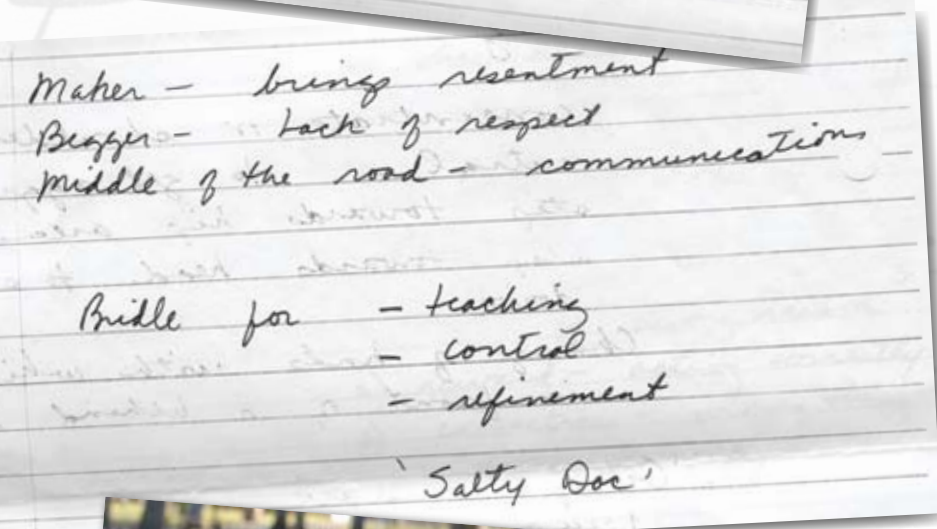 Maker - brings resentment
Begger - Lack of respect
Middle of the road - communications
Bridle for - teaching
- control
- refinement
'Salty Doc'